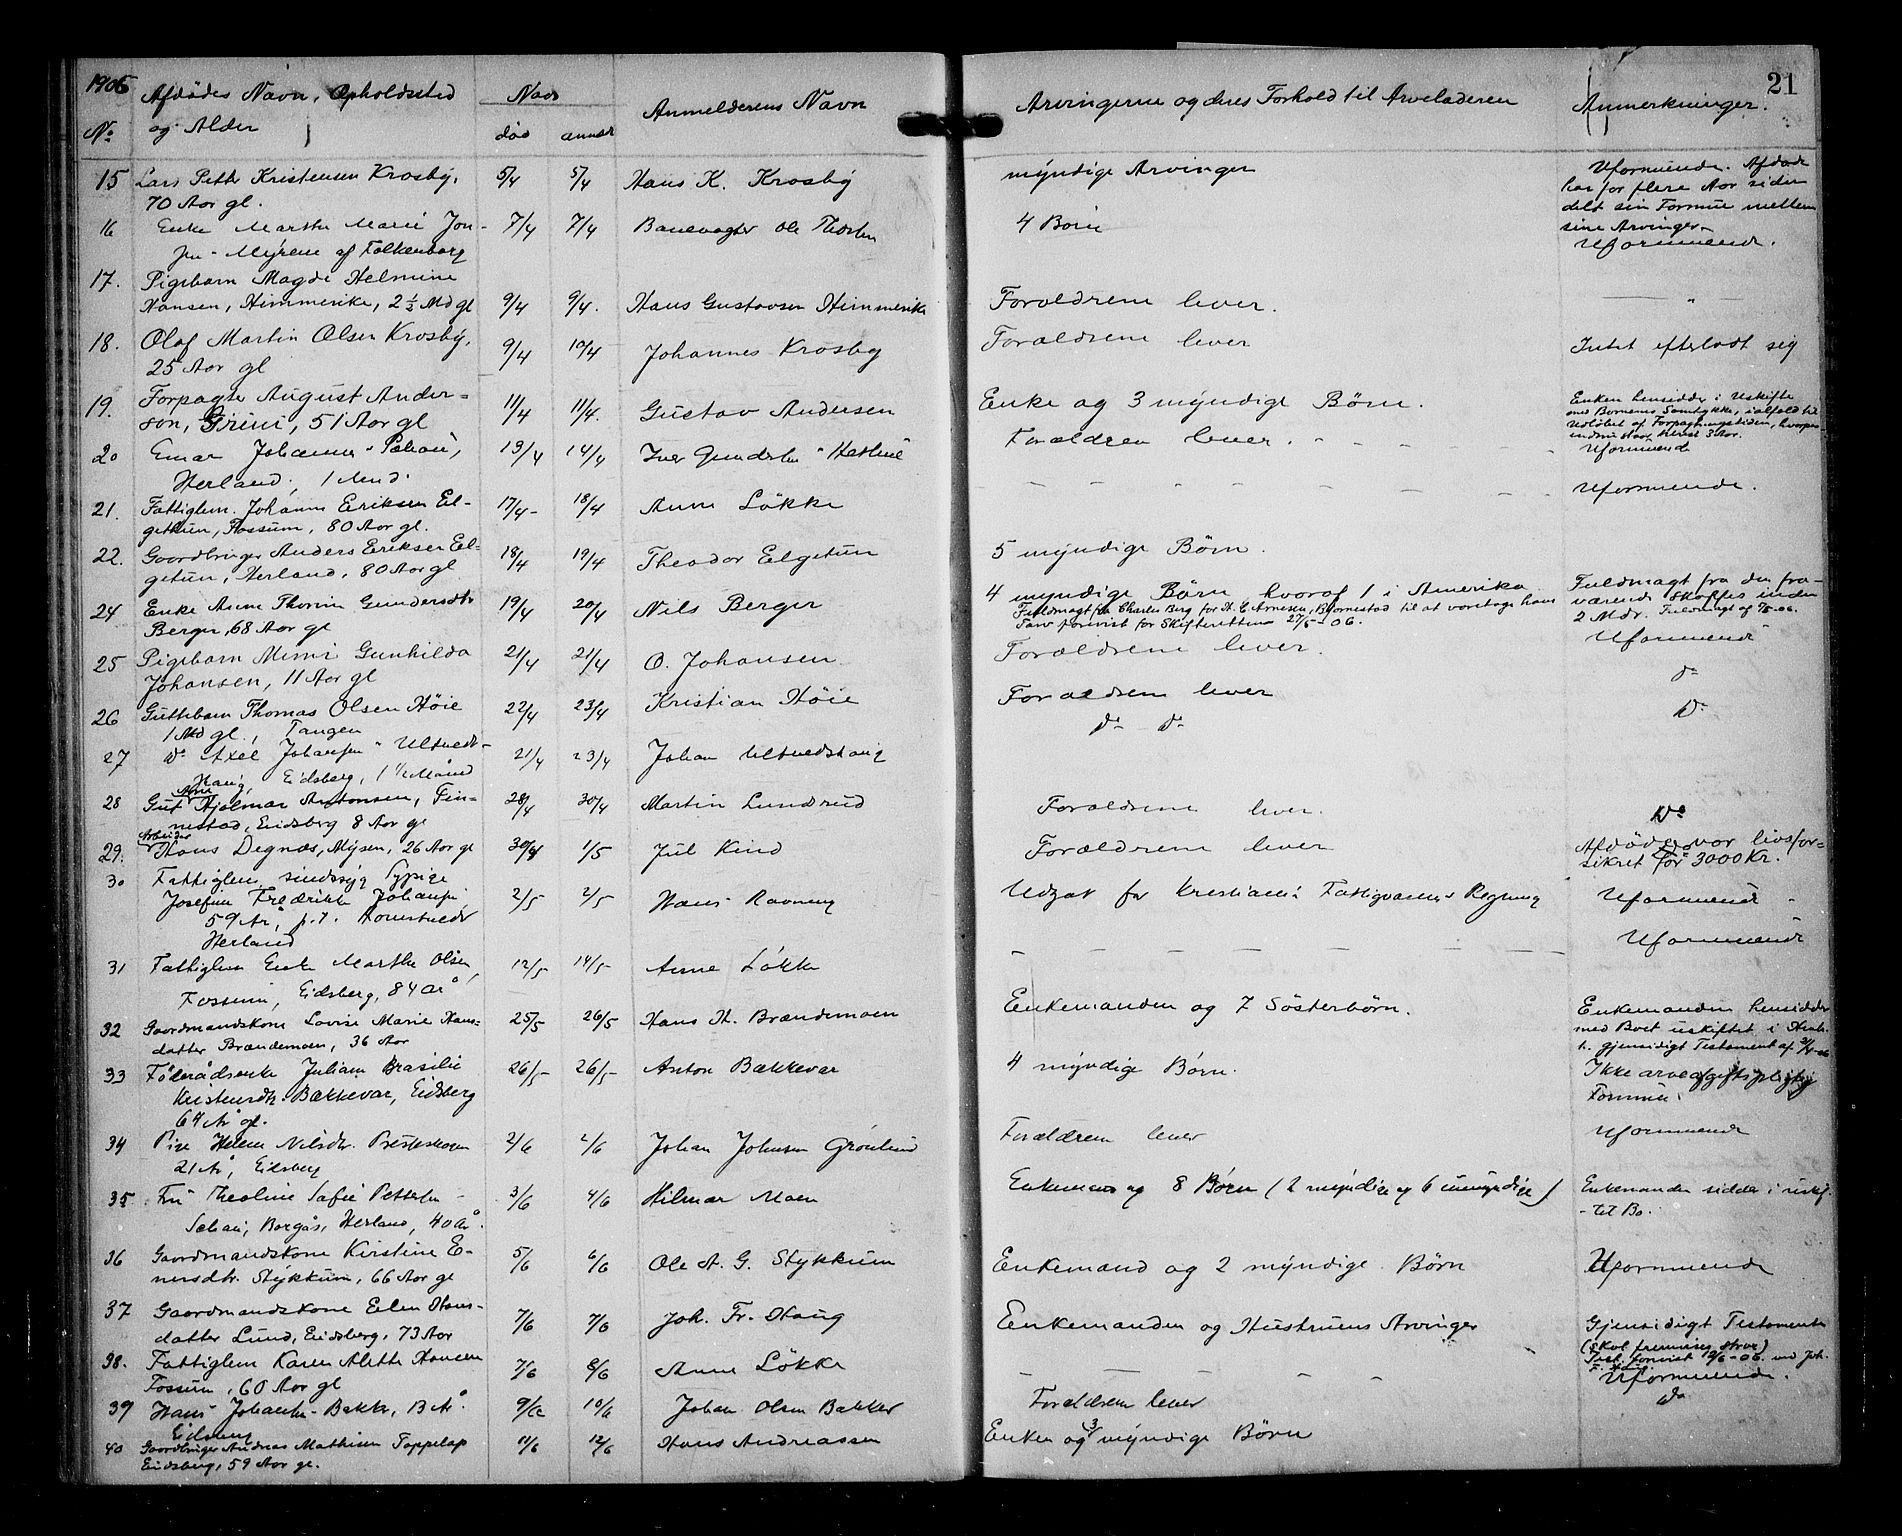 1906
21
Afdødes Navn, Opholdssted
og Alder
No
Naar
død
anmeldt
Anmelderens Navn
Arvingerne og deres Forhold til Arveladeren
Anmerkninger.
15 Lars Petter Kristensen Krosby, 5/4 5/4 Hans K. Krosby myndige Arvinger Uformuende. Afdøde
70 Aar gl. har for flere Aar siden
delt sin Formue mellem
sine Arvinger
16 Enke Marthe Marie Jon- 7/4 7/4 Banevogter Ole Thorsen 4 Børn Uformuende.
Myrene af Folkenborg
17. Pigebarn Magda Helmine
Hansen, Himmerike, 2½ Md gl 9/4 9/4. Hans Gustavsen Himmerike Forældrene lever. — " —
18. Olaf Martin Olsen Krosby, 9/4 10/4 Johannes Krosby Forældrene lever Intet efterladt sig
25 Aar gl
19. Forpagter August Ander= 11/4 11/4. Gustav Andersen Enke og 3 myndige Børn. Enken hensidder i Uskifte
son, Grini, 51 Aar gl med Børnenes Samtykke, ialfald til
Udløbet af Forpagtningstiden, hvorpaa
endnu staar 3 Aar.
20 Einar Johannes 13/4 14/4 Iver Forældren lever. Uformuende
Herland, 1 Aar
21. Fattiglem. Johanne Eriksen El- 17/4- 18/4 Anne Løkke - - - - Uformuende.
getun, Fossum, 80 Aar gl.
22. Gaardbruger Anders Eriksen El= 18/4 19/4 Theodor Elgetun 5 myndige Børn.
getun, Herland, 80 Aar gl
24 Enke Anne Thorine Gundersdtr 19/4 20/4 Nils Berger 4 myndige Børn, hvoraf 1 i Amerika Fuldmagt fra den fra-
Berger, 68 Aar gl Fuldmagt fra Charles Berg for A. G. Arnesen, Bjørnestad til at varetage hans værende skaffes inden
Tarv forevist for Skifteretten 27/5-06. 2 Mdr. Fuldmagt af 7/5-06.
25 Pigebarn Mimi Gunhilda 21/4 21/4 O. Johansen. Forældrene lever. Uformuende
Johansen, 11 Aar gl
26 Guttebarn Thomas Olsen Høie 22/4 23/4 Kristian Høie Forældrene lever do
1 Md gl., Tangen
27 Do Axel Johansen Ultvedt- 21/4 23/4 Johan Ultvedthaug Do Do Do
Haug, Eidsberg, 1½ Maaned
28 Gut Arne Hjalmar Antonsen, Fin- 28/4 30/4 Martin Lundsrud Forældrene lever. Do
nestad, Eidsberg 8 Aar gl
29. Arbeider Hans Degnæs, Mysen, 26 Aar gl 30/4 1/5 Jul Kind Forældrene lever Afdøde var livsfor=
sikret for 3000 Kr.
30 Fattiglem, sindssyg Pige
Josefine Fredrikke Johansen 2/5 2/5 Hans Ravneng Udsat for Kristiania Fattigvæsens Regning Uformuende
59 Aar, p.t. Homstvedt
Herland
31 Fattiglem Enke Marthe Olsen 12/5 14/5- Anne Løkke - - - - Uformuende
Fossum, Eidsberg, 84 Aar
32 Gaardmandskone Lovise Marie Hans= 25/5 26/5 Hans H. Brændemoen Enkemanden og 7 Søsterbørn. Enkemanden hensidder
datter Brændemoen, 36 Aar med Boet uskiftet i Henh.
t. gjensidigt Testament af
33 Føderådsenke Juliane Basilie 26/5- 26/5- Anton Bækkevar 4 myndige Børn. Ikke arveafgiftspligtig
Kristensdtr. Bækkevar, Eidsberg Formue.
64 Ar gl.
34 Pige Helene Nilsdtr. Presteskogen 2/6 2/6 Johan Johnsen Grønlund Forældrene lever Uformuende
21 Ar, Eidsberg
35 Fru Theoline Sofie Pettersen - 3/6 4/6 Hilmar Moen Enkeman og 8 Børn (2 myndige og 6 umyndige) Enkemanden sidder i uskif-
Borgås, Herland, 40 Ar. -tet Bo.
36 Gaardmandskone Kirstine E- 5/6 6/6 Ole A. G. Stykkum Enkemand og 2 myndige Børn Uformuende
nersdtr. Stykkum, 66 Aar gl
37 Gaardmandskone Elen Hans- 7/6 7/6 Joh. Fr. Haug Enkemanden og Hustruens Arvinger Gjensidigt Testamente
datter Lund, Eidsberg, 73 Aar (skal fremvises strax)
Test. forevist 12/6-06. ved Joh.
F. Haug
38. Fattiglem Karen Alette Hansen 7/6 8/6 Anne Løkke - - - - Uformuende.
Fossum, 60 Aar gl
39 Hans Johansen Bakke, 13 Ar. 9/6 10/6 Johan Olsen Bakker Forældrene lever Do
Eidsberg
40 Gaardbruger Andreas Mathisen Toppelap 11/6 12/6 Hans Andreassen Enken og 3 myndige Børn
Eidsberg, 59 Aar gl.